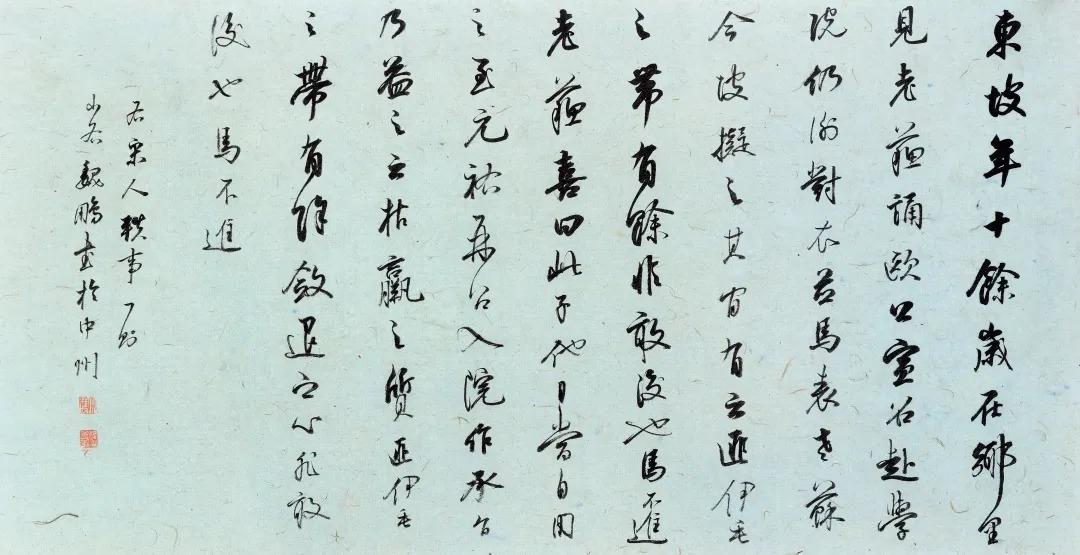 東坡年十餘歲在鄉里
見老蘓誦歐公宣召赴學
院仍謝對衣并馬表老蘇
令坡擬之其間有云匪伊垂
之帶有餘非敢後也馬不進
老蘓喜曰此子他日當自用
之至元祐再召入院作承旨
乃益之云枯羸之質匪伊垂
之帶有餘斂退之心非敢
後也馬不進
右宋人軼事一則
魏鵬書於中州